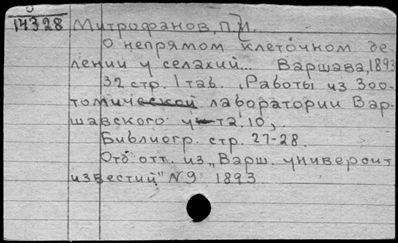 17328 Митрофанов, П.И.
О непрямом клеточном де-
лении у селахий... Варшава, 1893
32 стр. 1 таб. „Работы из зоо-
томической лаборатории Вар-
шавского у-та. 10,
Библиогр. стр. 27-28.
Отб отт. из „Варш. университ
известий" N9 1893